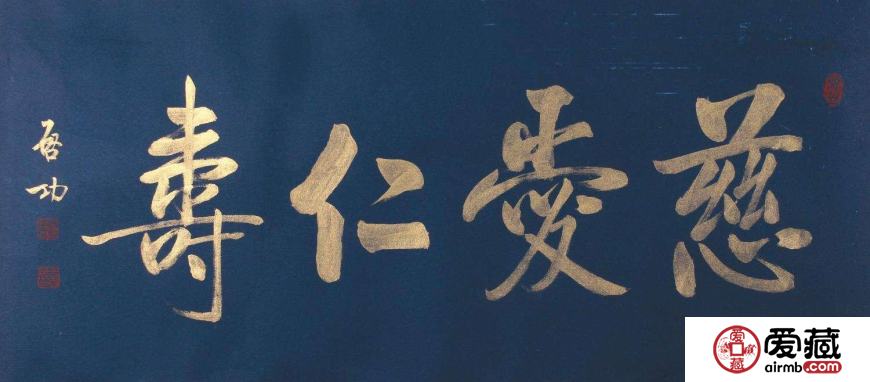 慈愛仁壽
啓功
爱藏
airmb.com